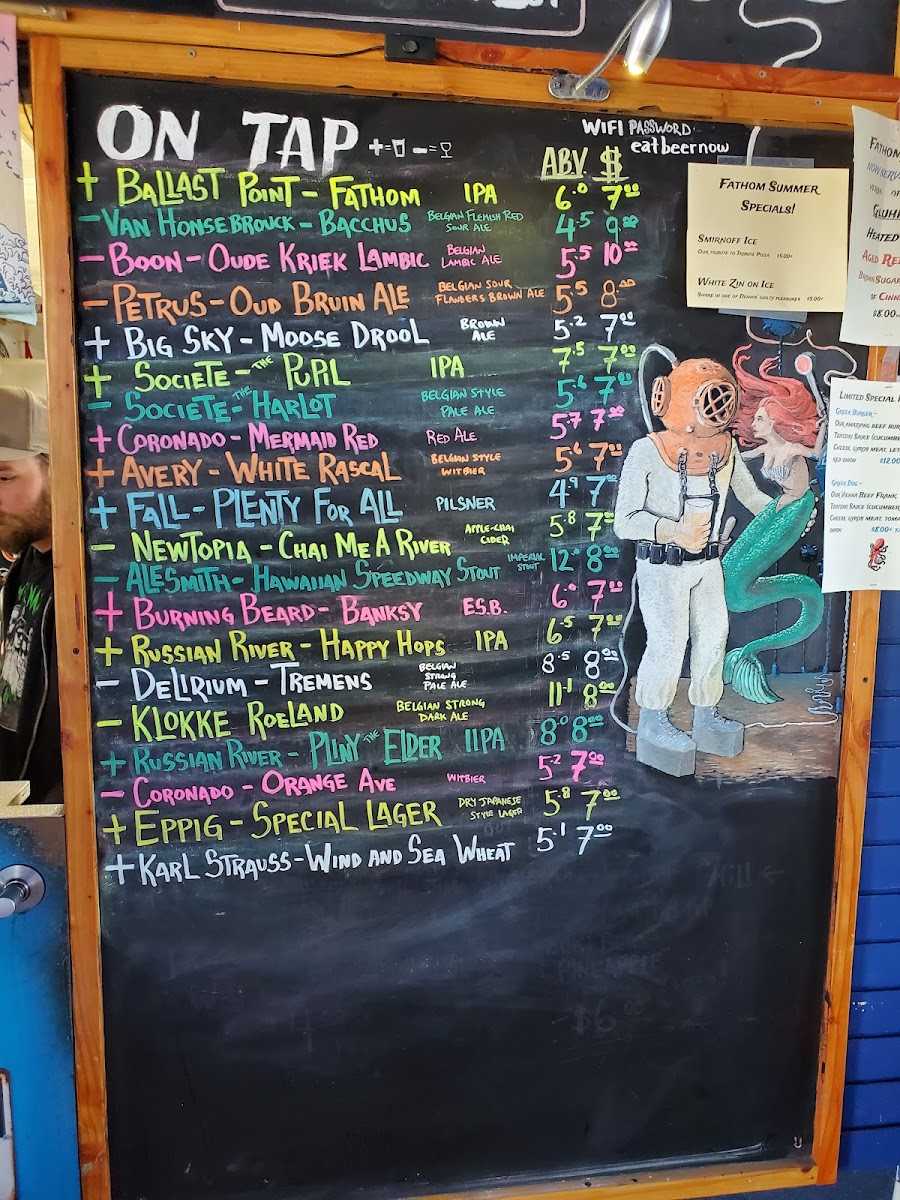 ON TAP + = - =
WIFI PASSWORD
eatbeernow
ABV $
+ BALLAST POINT - FATHOM IPA 6.0 7.00
- VAN HONSEBROUCK - BACCHUS BELGIAN FLEMISH RED SOUR ALE 4.5 9.00
- BOON - OUDE KRIEK LAMBIC BELGIAN LAMBIC ALE 5.5 10.00
- PETRUS - OUD BRUIN ALE BELGIAN SOUR FLANDERS BROWN ALE 5.5 8.00
+ BIG SKY - MOOSE DROOL BROWN ALE 5.2 7.00
+ SOCIETE - THE PUPIL IPA 7.5 7.00
- SOCIETE - THE HARLOT BELGIAN STYLE PALE ALE 5.6 7.00
+ CORONADO - MERMAID RED RED ALE 5.7 7.00
+ AVERY - WHITE RASCAL BELGIAN STYLE WITBIER 5.6 7.00
+ FALL - PLENTY FOR ALL PILSNER 4.9 7.00
- NEWTOPIA - CHAI ME A RIVER APPLE-CHAI CIDER 5.8 7.00
- ALESMITH - HAWAIIAN SPEEDWAY STOUT IMPERIAL STOUT 12.0 8.00
+ BURNING BEARD - BANKSY E.S.B. 6.0 7.00
+ RUSSIAN RIVER - HAPPY HOPS IPA 6.5 7.00
- DELIRIUM - TREMENS BELGIAN STRONG PALE ALE 8.5 8.00
- KLOKKE ROELAND BELGIAN STRONG DARK ALE 11.1 8.00
+ RUSSIAN RIVER - PLINY THE ELDER IIPA 8.0 8.00
- CORONADO - ORANGE AVE WITBIER 5.2 7.00
+ EPPIG - SPECIAL LAGER DRY JAPANESE STYLE LAGER 5.8 7.00
+ KARL STRAUSS - WIND AND SEA WHEAT 5.1 7.00
PINEAPPLE
$6
FATHOM SUMMER
SPECIALS!
SMIRNOFF ICE
OUR TRIBUTE TO TRIBUTE PIZZA 15.00+
WHITE ZIN ON ICE
SHARE IN ONE OF DENNIS' GUILTY PLEASURES 15.00+
FATHOM
NOW SERV
OF
GLUH
HEATED
AGED RE
BROWN SUGAR
OF CINN
$8.00
LIMITED SPECIAL
GREEK BURGER -
OUR AMAZYING BEEF BUR
TZATZIKI SAUCE (CUCUMBER
CHEESE, GYROS MEAT, LET
RED ONION $12.00
GREEK DOG -
OUR VIENNA BEEF FRANK
TZATZIKI SAUCE (CUCUMBER,
CHEESE, GYROS MEAT, TOMA
ONION $8.00+